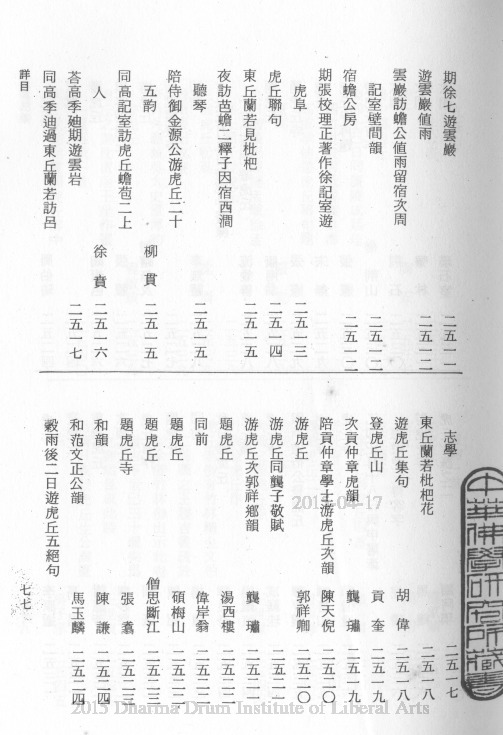 期徐七遊雲巖　二五一二
遊雲巖値雨　二五一二
雲巖訪蟾公値雨留宿次周
記室壁間韻　二五一二
宿蟾公房　二五一二
期張校理正著作徐記室遊
虎阜　二五一三
虎丘聯句　二五一四
東丘蘭若見枇杷　二五一五
夜訪芭蟾二釋子因宿西澗
聽琴　二五一五
陪侍御金源公游虎丘二十
五韵　柳貫　二五一五
同高記室訪虎丘蟾芭二上
人　徐賁　二五一六
荅高季廸期遊雲岩　二五一七
同高季迪過東丘蘭若訪呂
志學　二五一七
東丘蘭若枇杷花　二五一八
遊虎丘集句　胡偉　二五一八
登虎丘山　貢奎　二五一九
次貢仲章虎韻　龔璛　二五一九
陪貢仲章學士游虎丘次韻　陳天倪　二五二〇
游虎丘　郭祥卿　二五二〇
游虎丘同龔子敬賦　二五二一
游虎丘次郭祥鄉韻　龔璛　二五二一
題虎丘　湯西樓　二五二二
同前　偉岸翁　二五二二
題虎丘　碩梅山　二五二二
題虎丘　僧思斷江　二五二三
題虎丘寺　張翥　二五二三
和韻　陳謙　二五二四
和范文正公韻　馬玉麟　二五二四
穀雨後二日遊虎丘五絕句
詳目
七七
中華佛學研究所藏書
2015-04-17
2015 Dharma Drum Institute of Liberal Arts